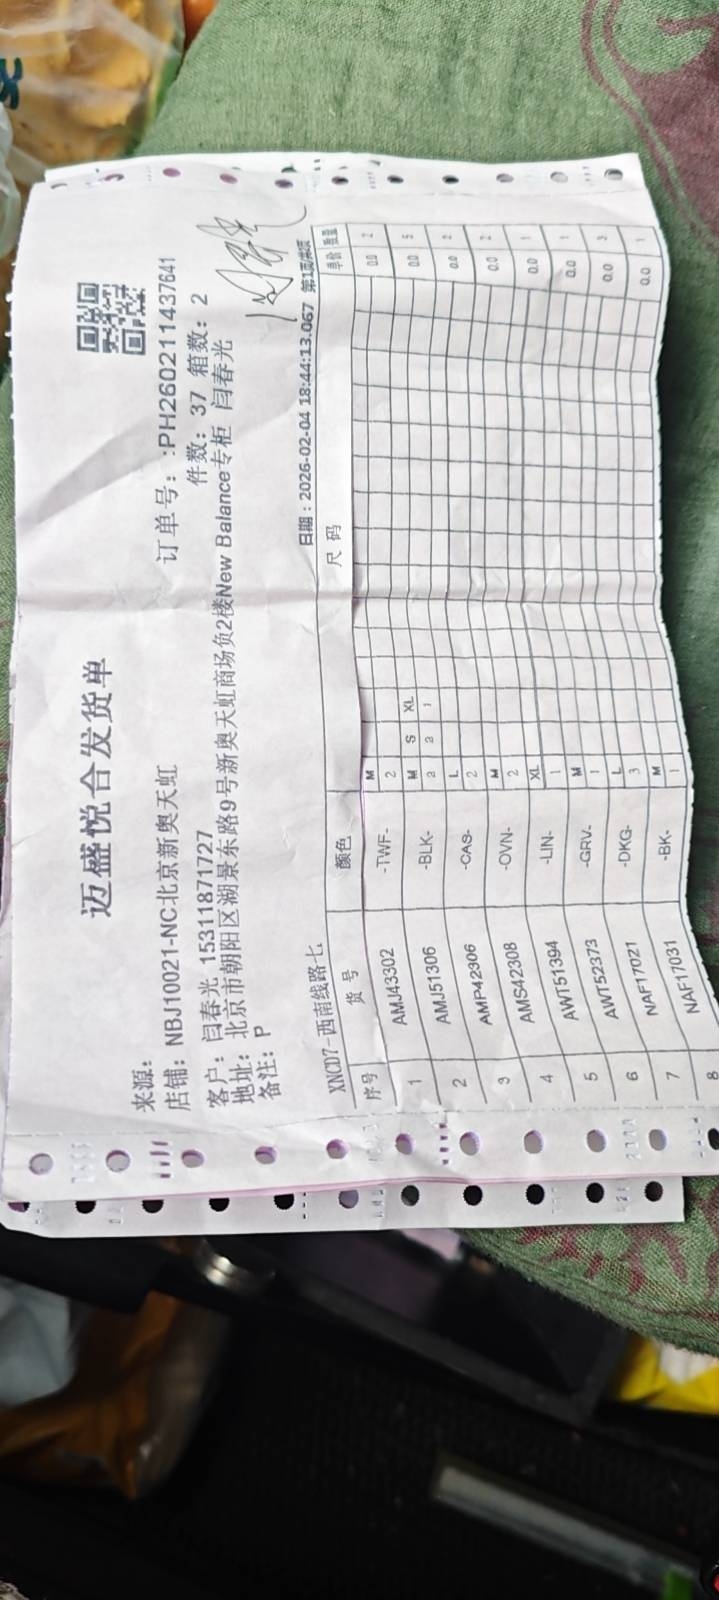 迈盛悦合发货单
来源：
店铺：NBJ10021-NC北京新奥天虹 订单号：:PH260211437641
客户：闫春光 15311871727 件数：37 箱数：2
地址：北京市朝阳区湖景东路9号新奥天虹商场负2楼New Balance专柜 闫春光
备注：P
XNCD7-西南线路七 日期：2026-02-04 18:44:13.067
序号 货号 颜色 尺码 单价 数量
M
1 AMJ43302 -TWF- 2 0.0 2
M S XL
2 AMJ51306 -BLK- 2 2 1 0.0 5
L
3 AMP42306 -CAS- 2 0.0 2
M
4 AMS42308 -OVN- 2 0.0 2
XL
5 AWT51394 -LIN- 1 0.0 1
M
6 AWT52373 -GRV- 1 0.0 1
L
7 NAF17021 -DKG- 3 0.0 3
M
8 NAF17031 -BK- 1 0.0 1